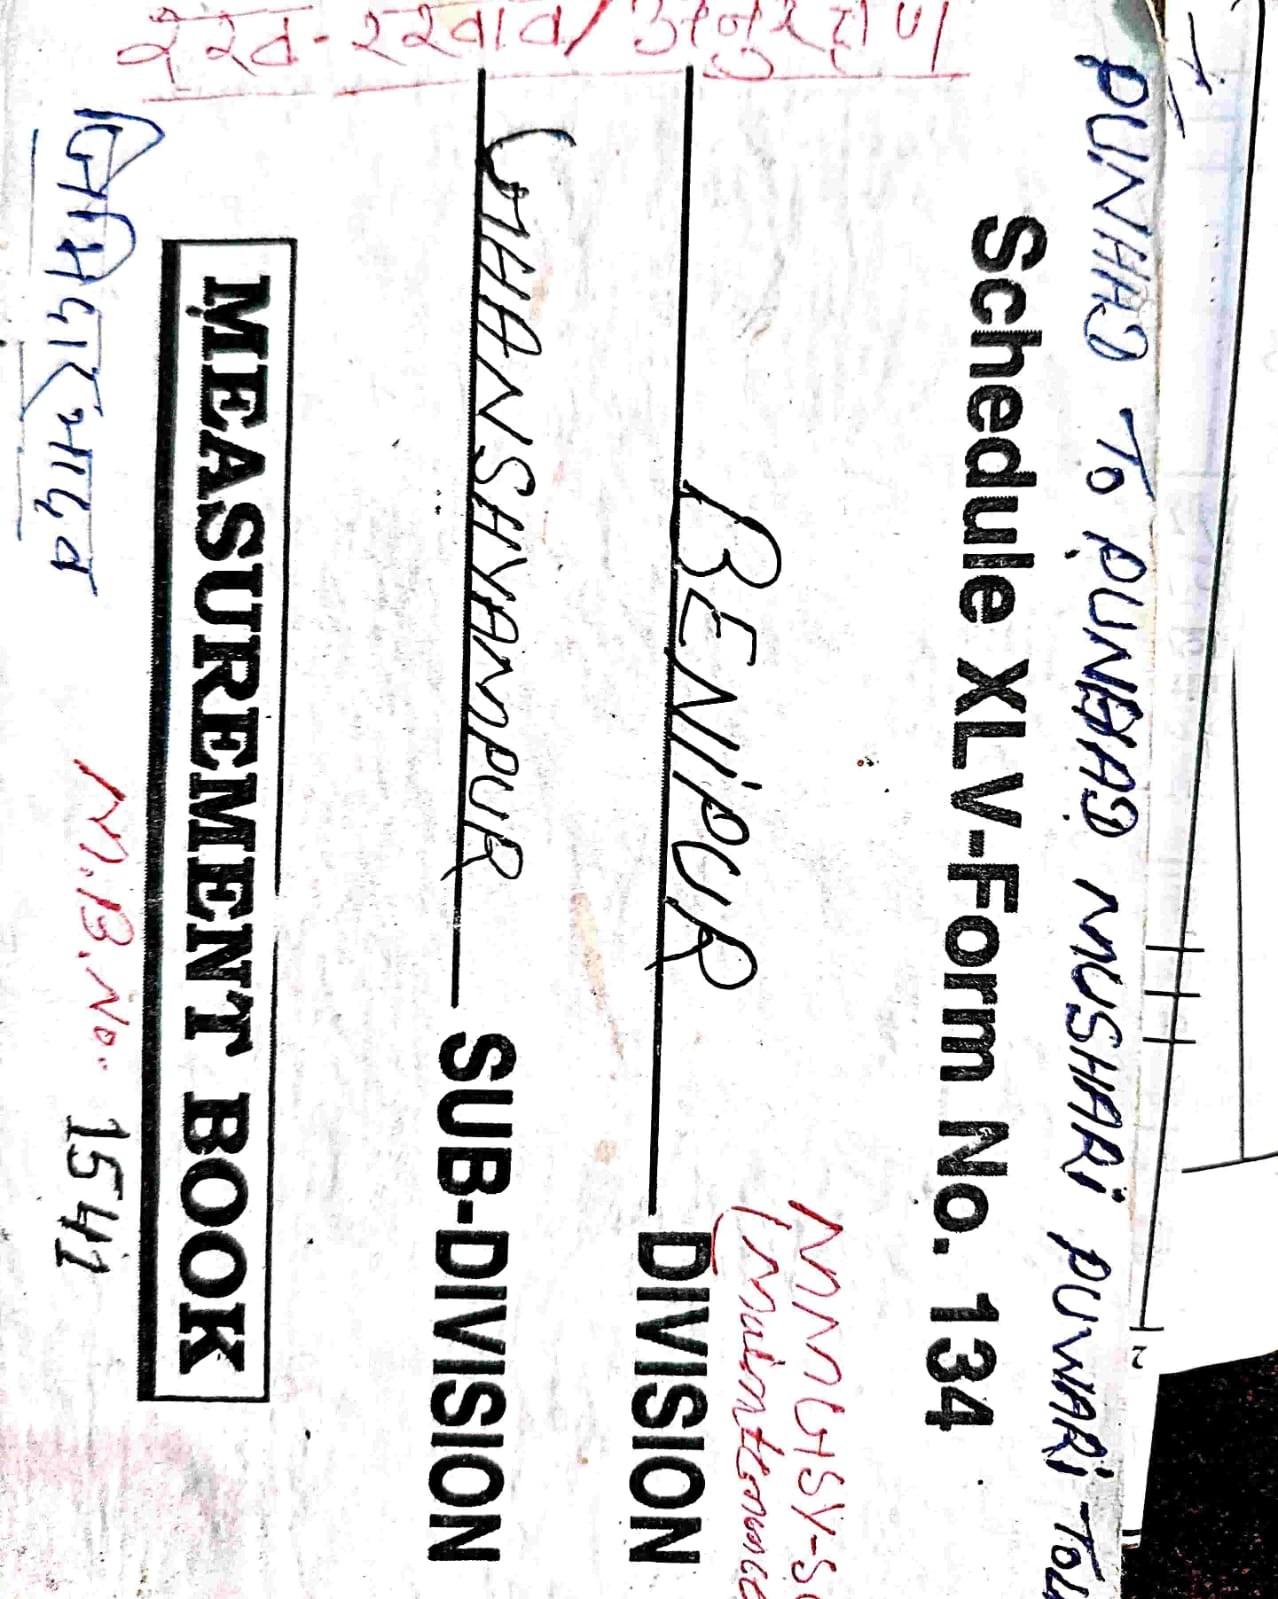 PUNHAD To PUNHAD MUSHARI PUWARI TOL
Schedule XLV-Form No. 134
MMGSY-S
(Maintenance
BENIPUR DIVISION
GHANSHYAMPUR SUB-DIVISION
MEASUREMENT BOOK
M.B.No. 1541
रख-रखाव/अनुरक्षण